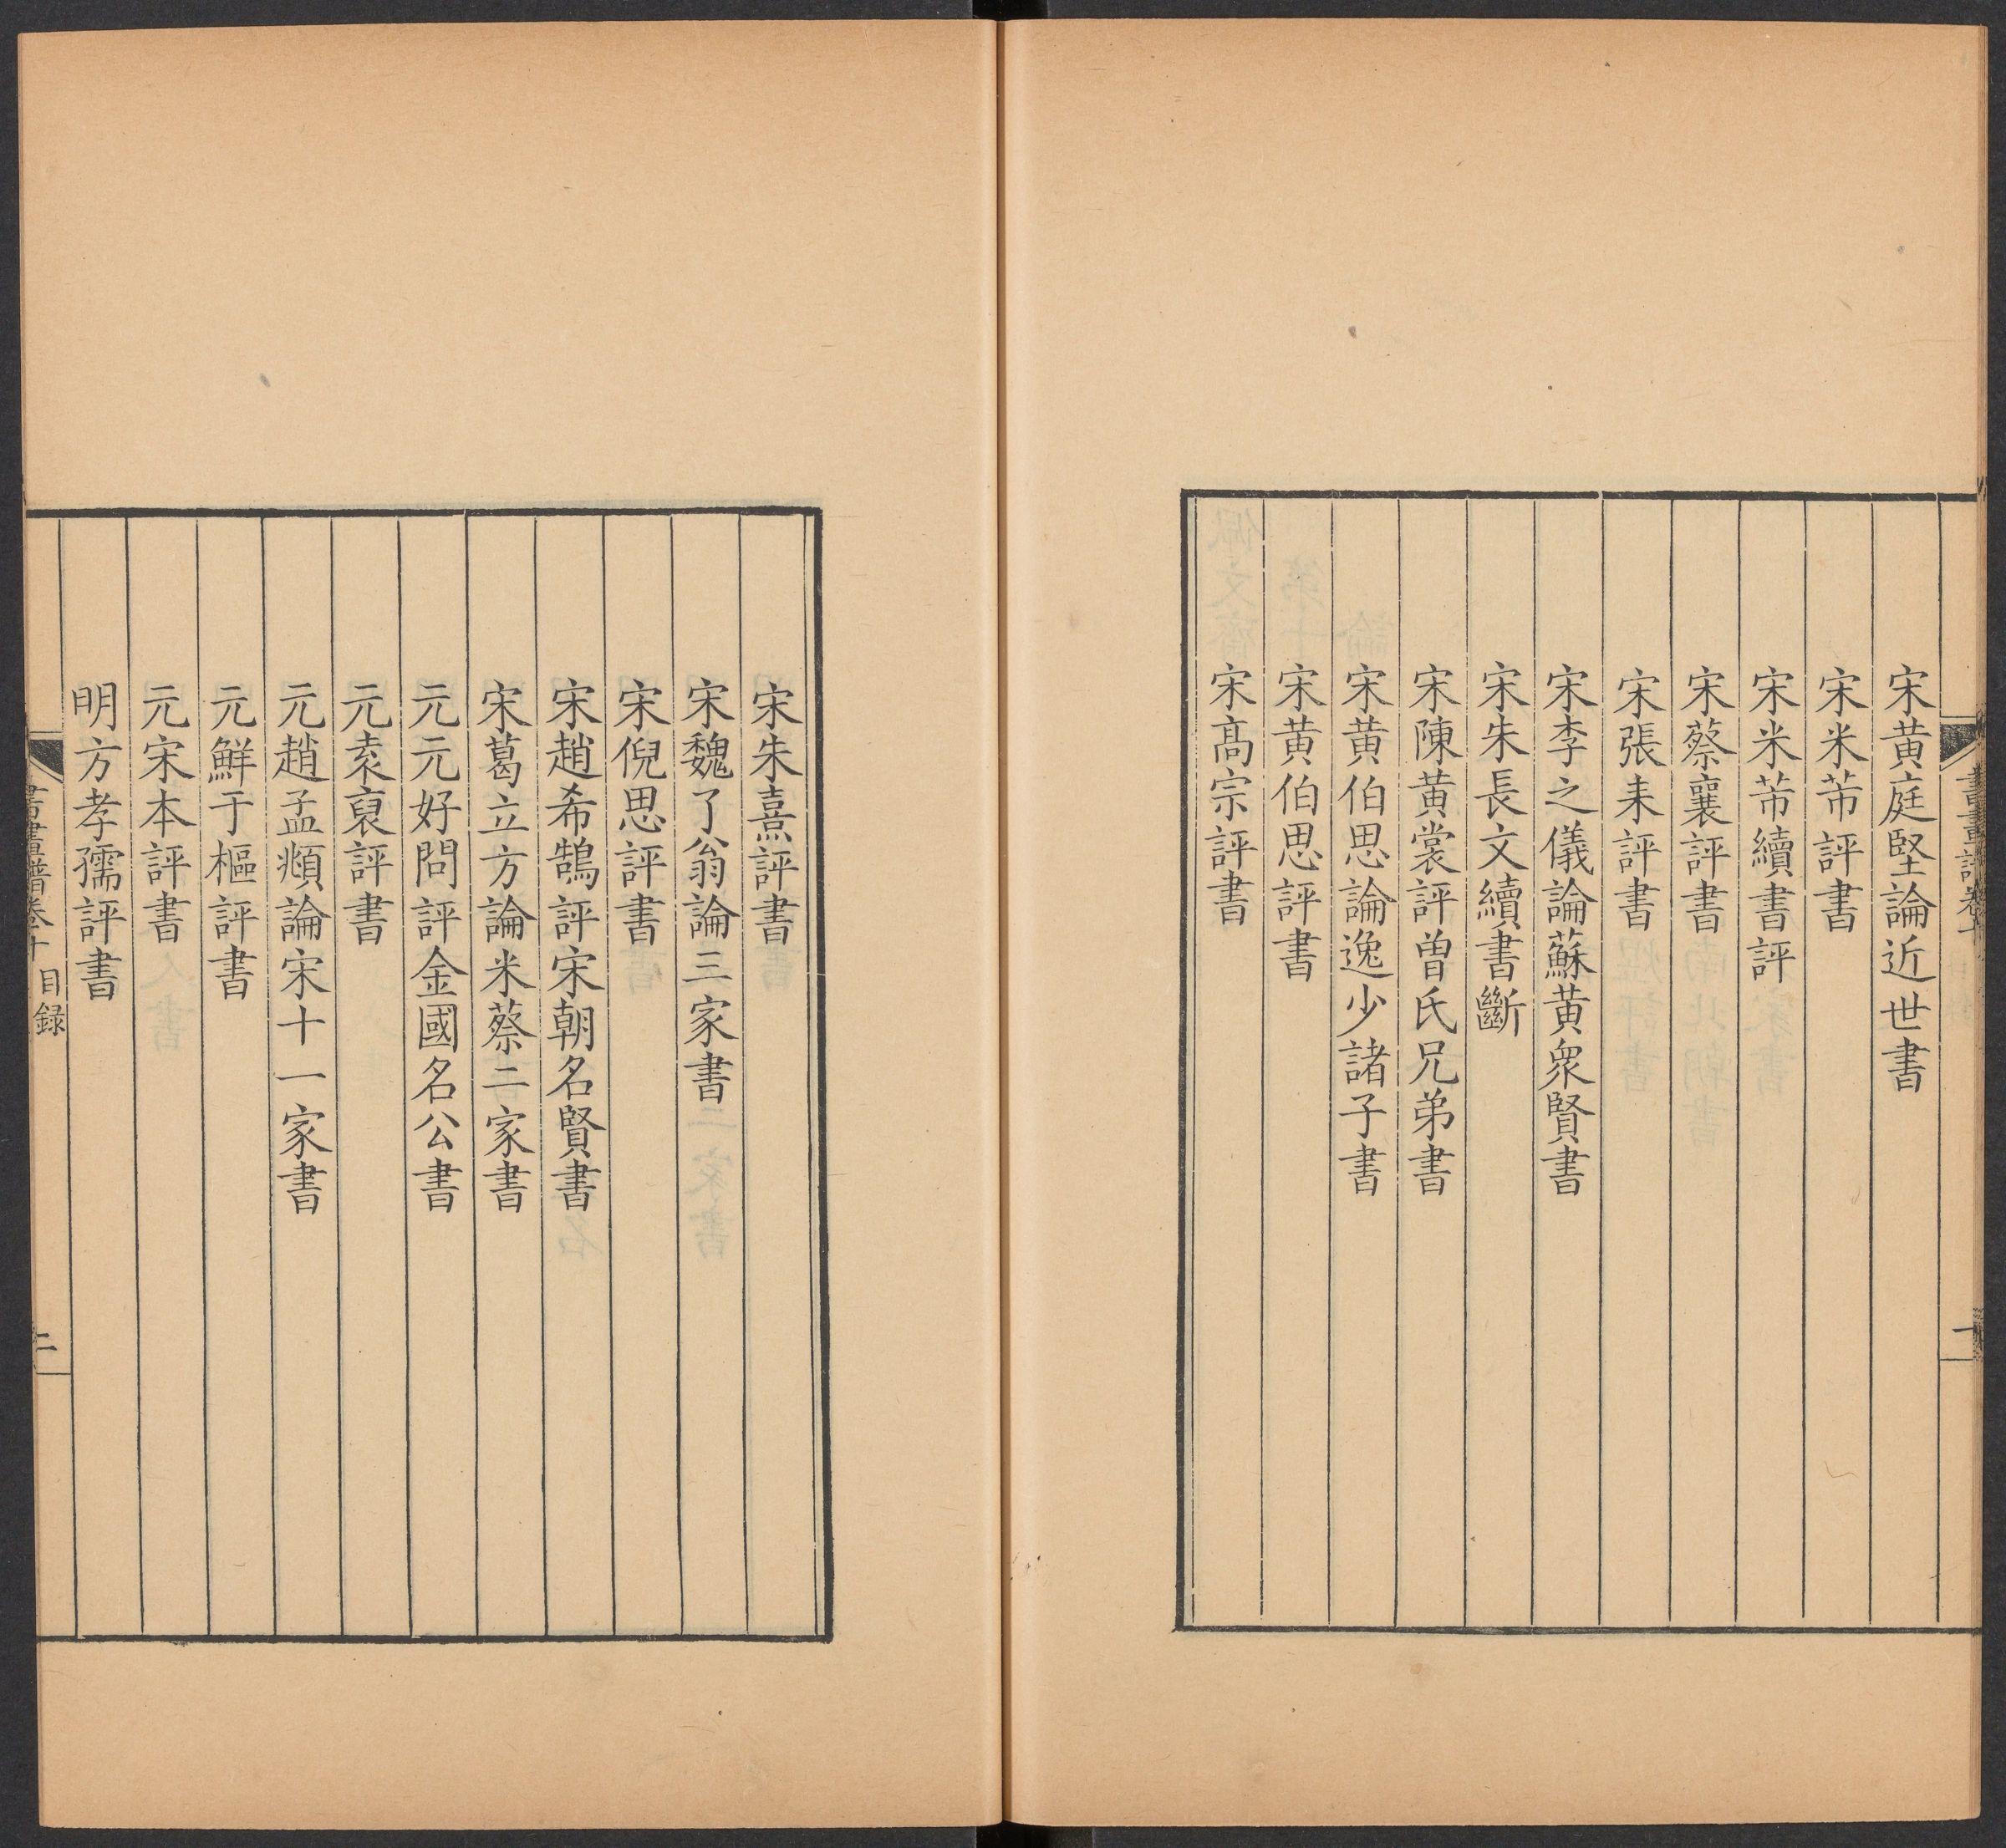 宋黃庭堅論近世書
宋米芾評書
宋米芾續書評
宋蔡襄評書
宋張耒評書
宋李之儀論蘇黃衆賢書
宋朱長文續書斷
宋陳黃裳評曾氏兄弟書
宋黃伯思論逸少諸子書
宋黃伯思評書
宋高宗評書
宋朱熹評書
宋魏了翁論三家書
宋倪思評書
宋趙希鵠評宋朝名賢書
宋葛立方論米蔡二家書
元元好問評金國名公書
元袁裒評書
元趙孟頫論宋十一家書
元鮮于樞評書
元宋本評書
明方孝孺評書
書畫譜卷十 目錄
二